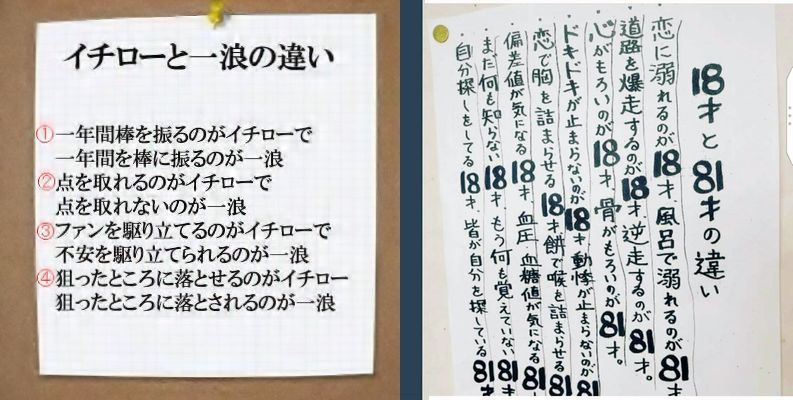 イチローと一浪の違い
①一年間棒を振るのがイチローで
一年間を棒に振るのが一浪
②点を取れるのがイチローで
点を取れないのが一浪
③ファンを駆り立てるのがイチローで
不安を駆り立てられるのが一浪
④狙ったところに落とせるのがイチロー
狙ったところに落とされるのが一浪
18才と81才の違い
恋に溺れるのが18才、風呂で溺れるのが81才
道路を爆走するのが18才、逆走するのが81才。
心がもろいのが18才、骨がもろいのが81才。
ドキドキが止まらないのが18才、動悸が止まらないのが81
恋で胸を詰まらせる18才、餅で喉を詰まらせる81
偏差値が気になる18才、血圧、血糖値が気になる81
まだ何も知らない18才、もう何も覚えていない81
自分探しをしてる18才、皆が自分を探している81